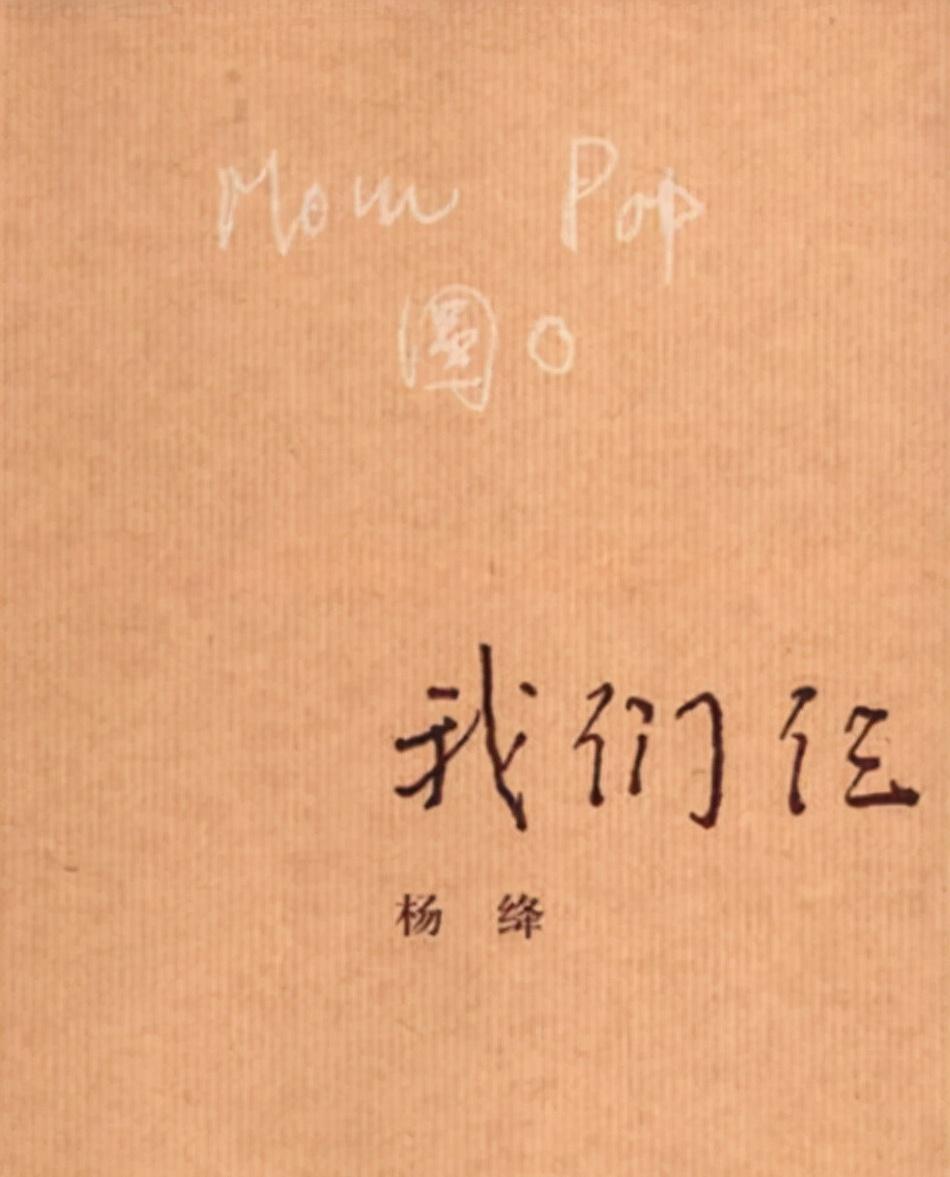 Mom Pop
圓 O
我们仨
杨绛